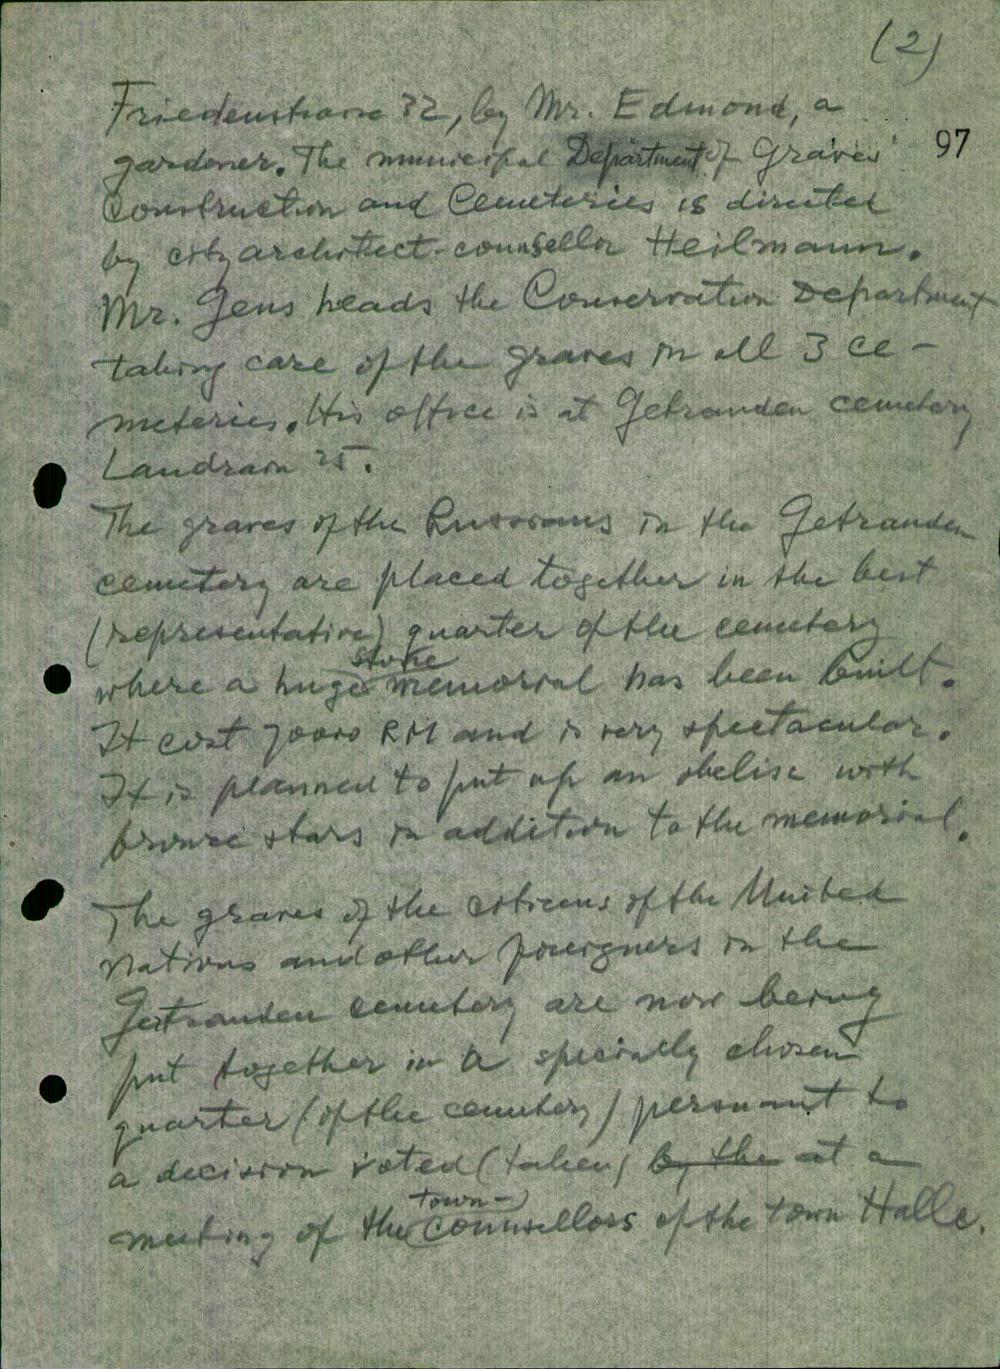 (2)
Friedenstrasse 32, by Mr. Edmond, a
97
gardener. The municipal Department of Graves
Construction and Cemeteries is directed
by city architect-counsellor Heilmann.
Mr. Gens heads the Conservation Department
taking care of the graves in all 3 ce-
meteries. His office is at Getrauden cemetery
Landrain 25.
The graves of the Russians in the Getrauden
cemetery are placed together in the best
(representative) quarter of the cemetery
stone
where a huge memorial has been built.
It cost 70000 RM and is very spectacular.
It is planned to put up an obelisc with
bronze stars in addition to the memorial.
The graves of the citizens of the United
Nations and other foreigners in the
Gertrauden cemetery are now being
put together in a specially chosen
quarter (of the cemetery) persuant to
a decision voted (taken) by the at a
town-
meeting of the counsellors of the town Halle.